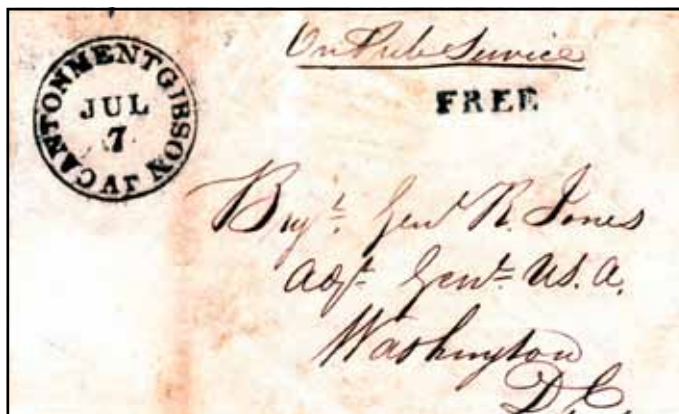 CANTONMENT GIBSON
JUL
7
On Pub Service
FREE
Brigt. Genl. R. Jones
Adjt. Genl. U.S.A.
Washington
D.C